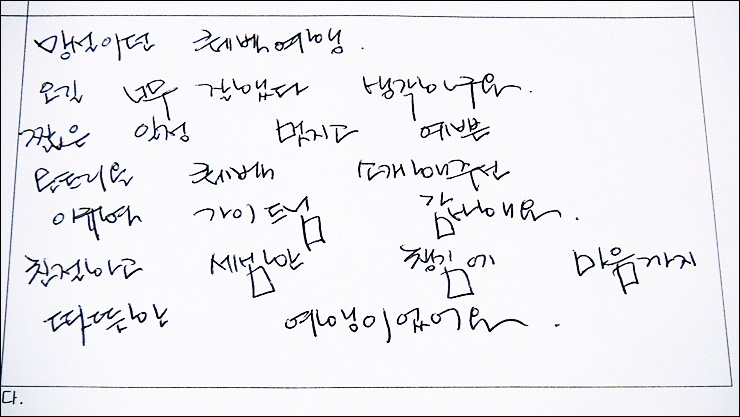 망설이던 퀘벡여행.
오길 너무 잘했다 생각이구요.
짧은 일정 멋지고 예쁜
몬트리올 퀘벡 소개해주신
가이드님 감사해요.
친절하고 세심한 챙김에 마음까지
따뜻한 여행이었어요.
다.